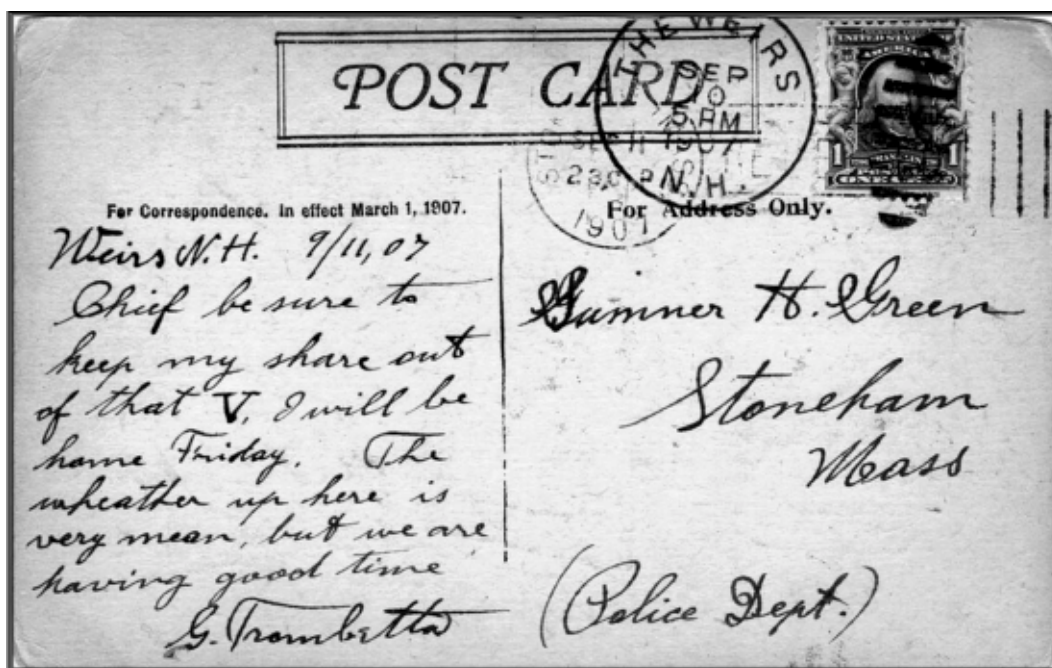 POST CARD
THE WEIRS
SEP
10
5 PM
1907
N.H.
SEP 11
230 P
1907
UNITED STATES OF
AMERICA
FRANKLIN
1 1
ONE CENT
For Correspondence. In effect March 1, 1907.
For Address Only.
Weirs N.H. 9/11, 07
Chief be sure to
keep my share out
of that V, I will be
home Friday. The
wheather up here is
very mean, but we are
having good time
G. Trombetta
Sumner H. Green
Stoneham
Mass
(Police Dept.)